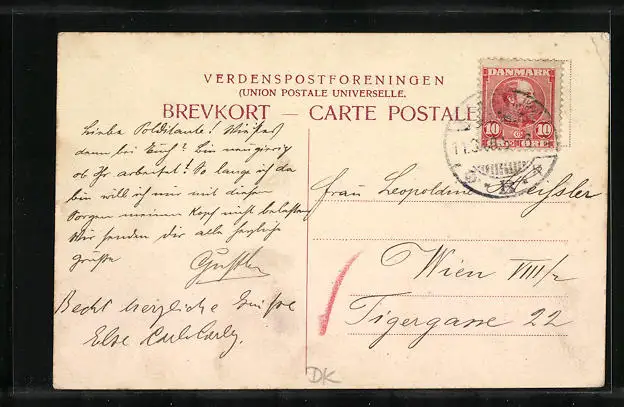 VERDENSPOSTFORENINGEN
(UNION POSTALE UNIVERSELLE.
BREVKORT — CARTE POSTALE
DANMARK
10 10
ØRE
Liebe Polditante!
denn bei Euch? Bin neugierig
ob Ihr arbeitet! So lange ich da
bin will ich mir mit diesen
Sorgen meinen Kopf nicht belasten
Wir senden dir alle herzliche
Grüße
Recht herzliche Grüsse
Else
Frau Leopoldine
Wien VIII/2
Tigergasse 22
DK